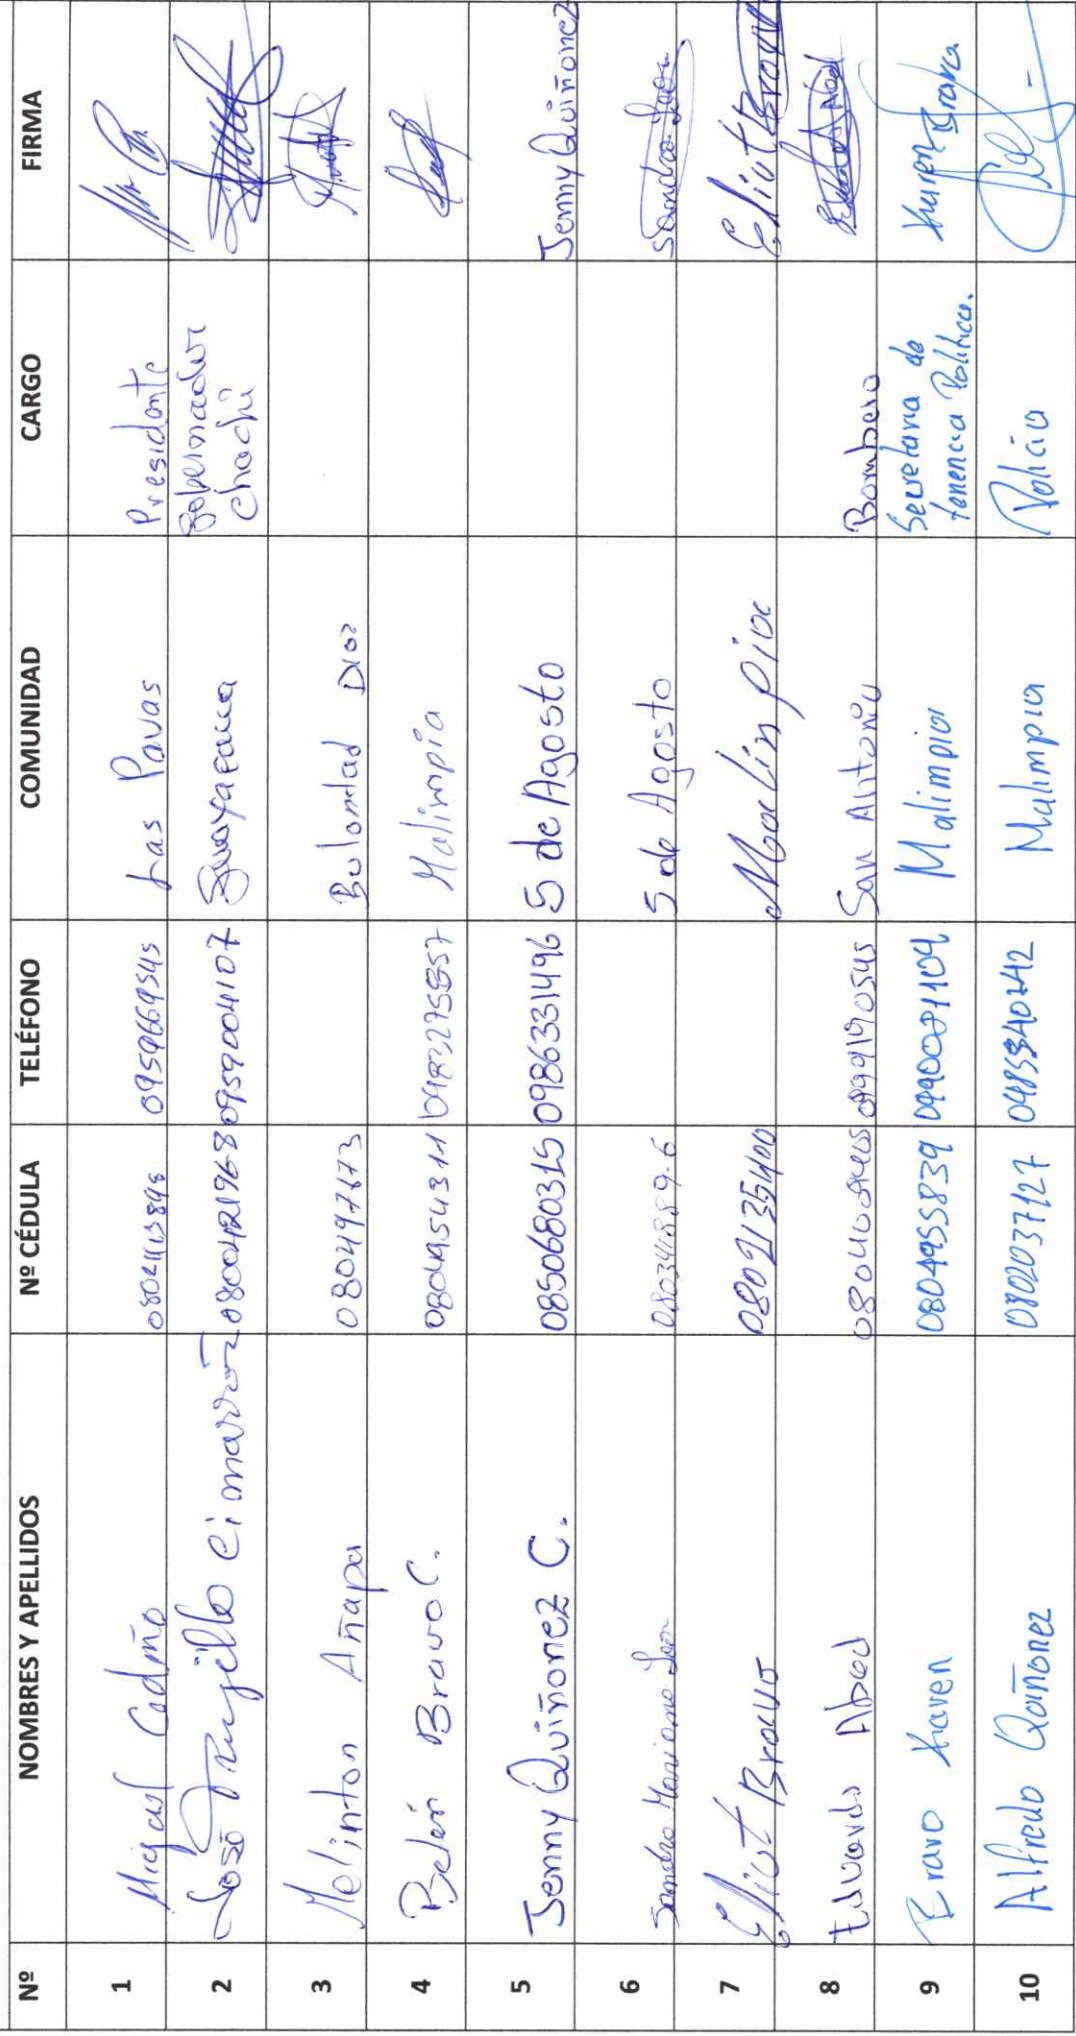 Nº NOMBRES Y APELLIDOS Nº CÉDULA TELÉFONO COMUNIDAD CARGO FIRMA
1 Miguel Cedeño 0959669545 Las Pavas Presidente
2 José Trujillo Cimarrón 0800421968 0959004107 Guayacana Gobernador Chachi
3 Melinton Añapa 080497673
4 Belén Bravo C. 0804954311 Malimpia
5 Jenny Quiñonez C. 0850680315 0986331496 5 de Agosto Jenny Quiñonez
6 Sandra Mariana Leon 080341889-6 5 de Agosto Sandra Leon
7 Eliut Bravo 0802135400 Malimpia Eliut Bravo
8 Eduardo Abad San Antonio Bombero
9 Bravo Karen 0804955839 Malimpia Secretaria de tenencia Politica. Karen Bravo
10 Alfredo Quiñonez 0802037127 Malimpia Policia